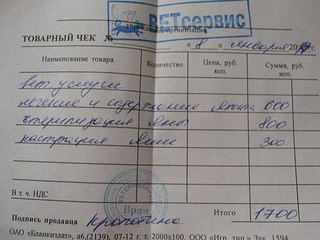 ВЕТсервис
ТОВАРНЫЙ ЧЕК №
" 8 " января 20
Наименование товара Количество Цена, руб. коп. Сумма, руб. коп.
вет услуги
лечение и содержание 600
стерилизация Яны 800
кастрация Яши 300
В т. ч. НДС
Врач
Подпись продавца Итого 1700
ОАО «Бланкиздат», аб.(2139), 07-12 г. т. 2000х100. ООО «Игр. тип.» Зак. 1594